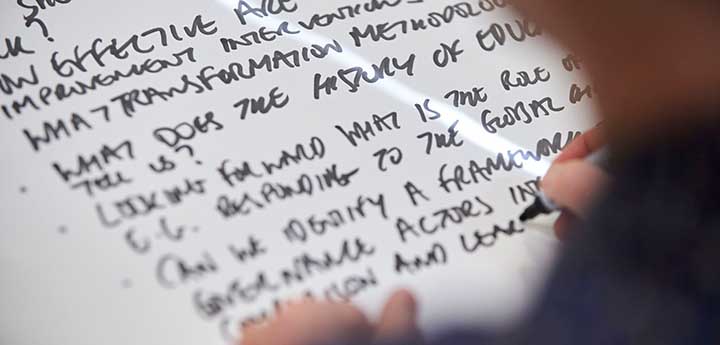 EFFECTIVE ARE
IMPROVEMENT INTERVENTION
WHAT TRANSFORMATION METHODOLOG
WHAT DOES THE HISTORY OF EDUC
TELL US?
LOOKING FORWARD WHAT IS THE ROLE OF
E.G. RESPONDING TO THE GLOBAL
CAN WE IDENTIFY A FRAMEWORK
GOVERNANCE ACTORS INT
AND LEAR